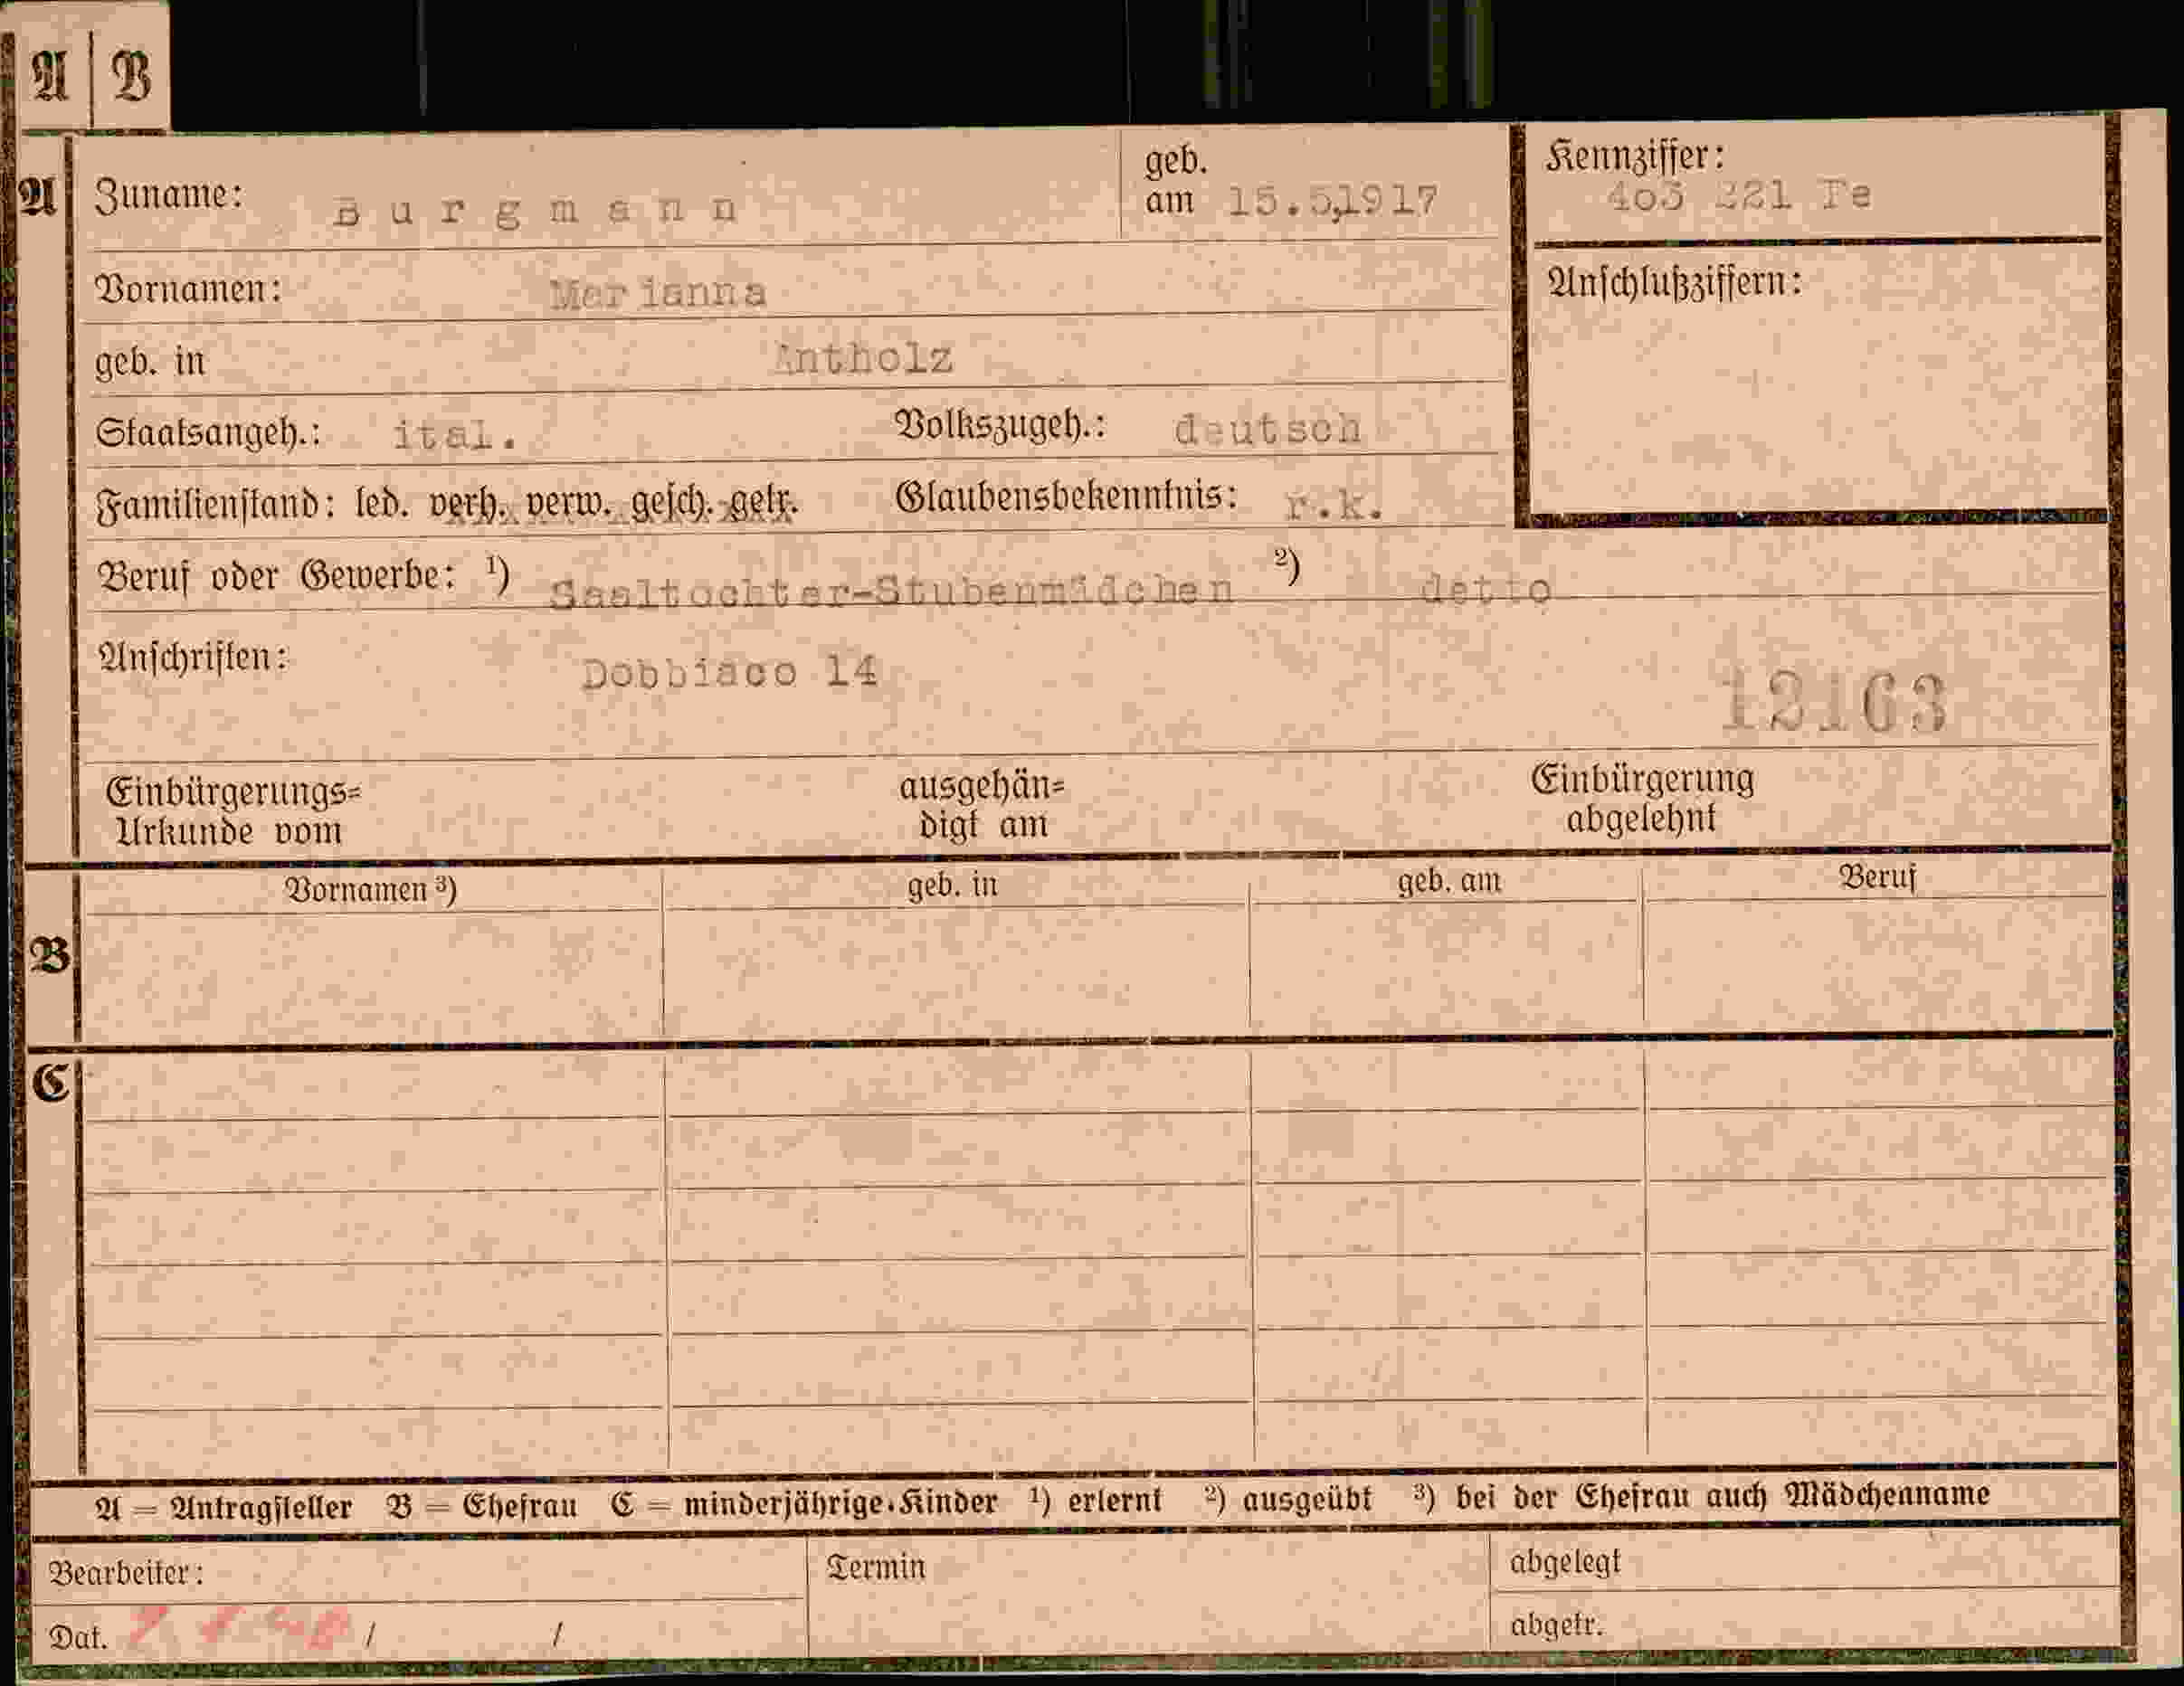 A B
A Zuname: Burgmann geb. am 15.5.1917 Kennziffer:
Vornamen: Marianna Anschlußziffern:
geb. in Antholz
Staatsangeh.: ital. Volkszugeh.: deutsch
Familienstand: led. verh. verw. gesch. getr. Glaubensbekenntnis: r.k.
Beruf oder Gewerbe: ¹) Saaltochter-Stubenmädchen ²) detto
Anschriften: Dobbiaco 14
12163
Einbürgerungs= ausgehän= Einbürgerung
Urkunde vom digt am abgelehnt
Vornamen ³) geb. in geb. am Beruf
B
C
A = Antragsteller B = Ehefrau C = minderjährige Kinder ¹) erlernt ²) ausgeübt ³) bei der Ehefrau auch Mädchenname
Bearbeiter: Termin abgelegt
Dat. / / abgetr.